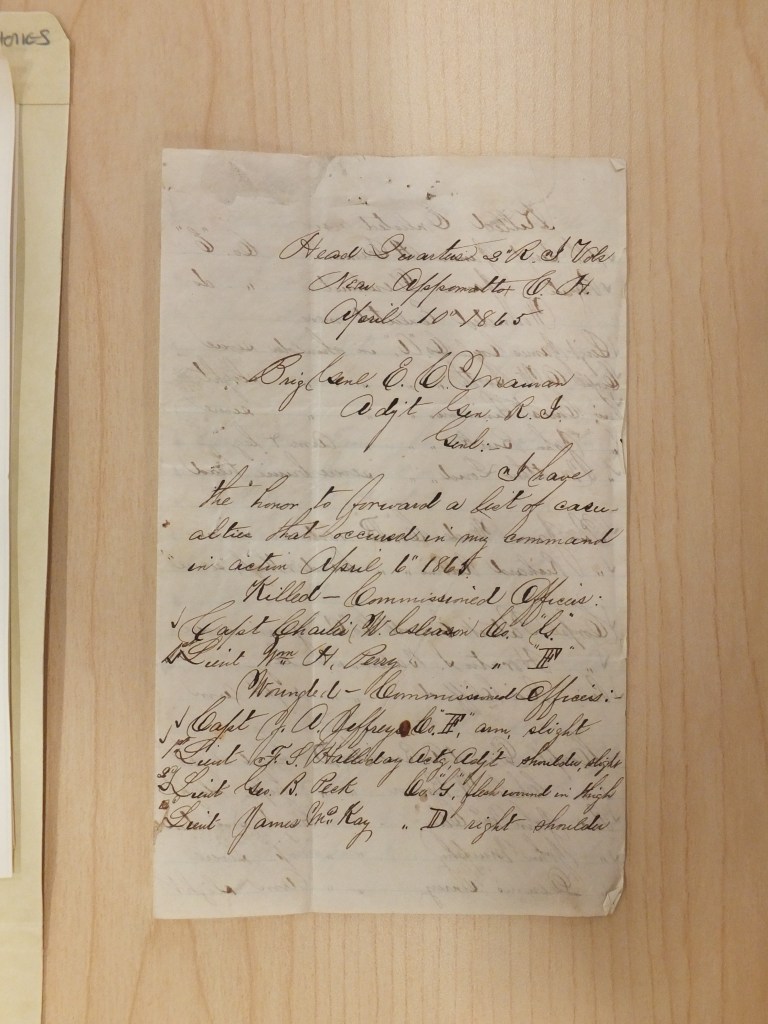 Head Quarters 2d R. I Vols
Near Appomattox C. H.
April 10" 1865
Brig Genl. E. C. Mauran
Adj't Gen R. I.
Genl:-
I have
the honor to forward a list of casu-
alties that occured in my command
in action April 6" 1865.
Killed - Commissioned Officers:
Capt Charles W. Gleason Co. "G."
1st Lieut Wm H. Perry " "F"
Wounded - Commissioned Officers:-
Capt J. A. Jeffreys Co. "F", arm, slight
1st Lieut F. S. Halliday Actg Adjt shoulder, slight
2d Lieut Geo. B. Peck Co. "G", flesh wound in thigh
Lieut James McKay " D right shoulder